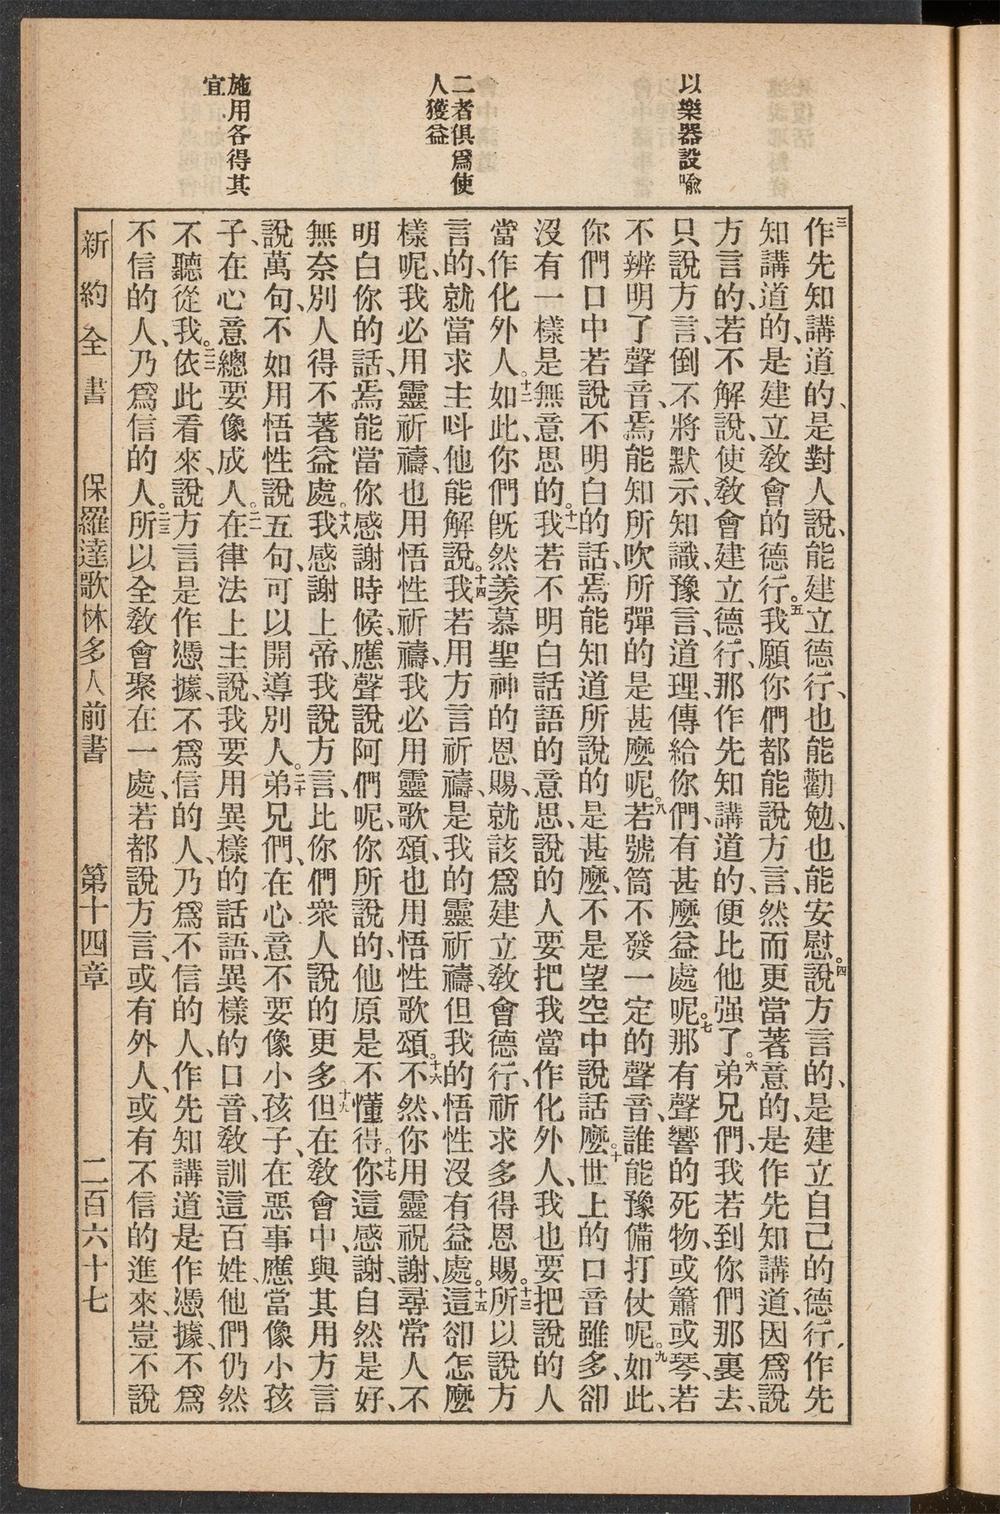 以樂器設喻
二者俱爲使
人獲益
施用各得其
宜
三作先知講道的、是對人說、能建立德行、也能勸勉、也能安慰。四說方言的、是建立自己的德行、作先
知講道的、是建立敎會的德行。五我願你們都能說方言、然而更當著意的、是作先知講道、因爲說
方言的、若不解說、使敎會建立德行、那作先知講道的、便比他强了。六弟兄們、我若到你們那裏去、
只說方言、倒不將默示、知識、豫言、道理、傳給你們、有甚麼益處呢。七那有聲響的死物、或簫或琴、若
不辨明了聲音、焉能知所吹所彈的是甚麼呢。八若號筒不發一定的聲音、誰能豫備打仗呢。九如此、
你們口中若說不明白的話、焉能知道所說的是甚麼、不是望空中說話麼。十世上的口音雖多、卻
沒有一樣是無意思的。十一我若不明白話語的意思、說的人要把我當作化外人、我也要把說的人
當作化外人。十二如此、你們旣然羨慕聖神的恩賜、就該爲建立敎會德行、祈求多得恩賜。十三所以說方
言的、就當求主呌他能解說。十四我若用方言祈禱、是我的靈祈禱、但我的悟性沒有益處。十五這卻怎麼
樣呢、我必用靈祈禱、也用悟性祈禱、我必用靈歌頌、也用悟性歌頌。十六不然、你用靈祝謝、尋常人不
明白你的話、焉能當你感謝時候、應聲說阿們呢、你所說的、他原是不懂得。十七你這感謝、自然是好、
無奈別人得不著益處。十八我感謝上帝、我說方言、比你們衆人說的更多。十九但在敎會中、與其用方言
說萬句、不如用悟性說五句、可以開導別人。二十弟兄們、在心意不要像小孩子、在惡事應當像小孩
子、在心意總要像成人。二一在律法上主說、我要用異樣的話語、異樣的口音、敎訓這百姓、他們仍然
不聽從我。二二依此看來、說方言是作憑據、不爲信的人、乃爲不信的人、作先知講道是作憑據、不爲
不信的人、乃爲信的人。二三所以全敎會聚在一處、若都說方言、或有外人、或有不信的進來、豈不說
新約全書　保羅達歌林多人前書　第十四章　二百六十七